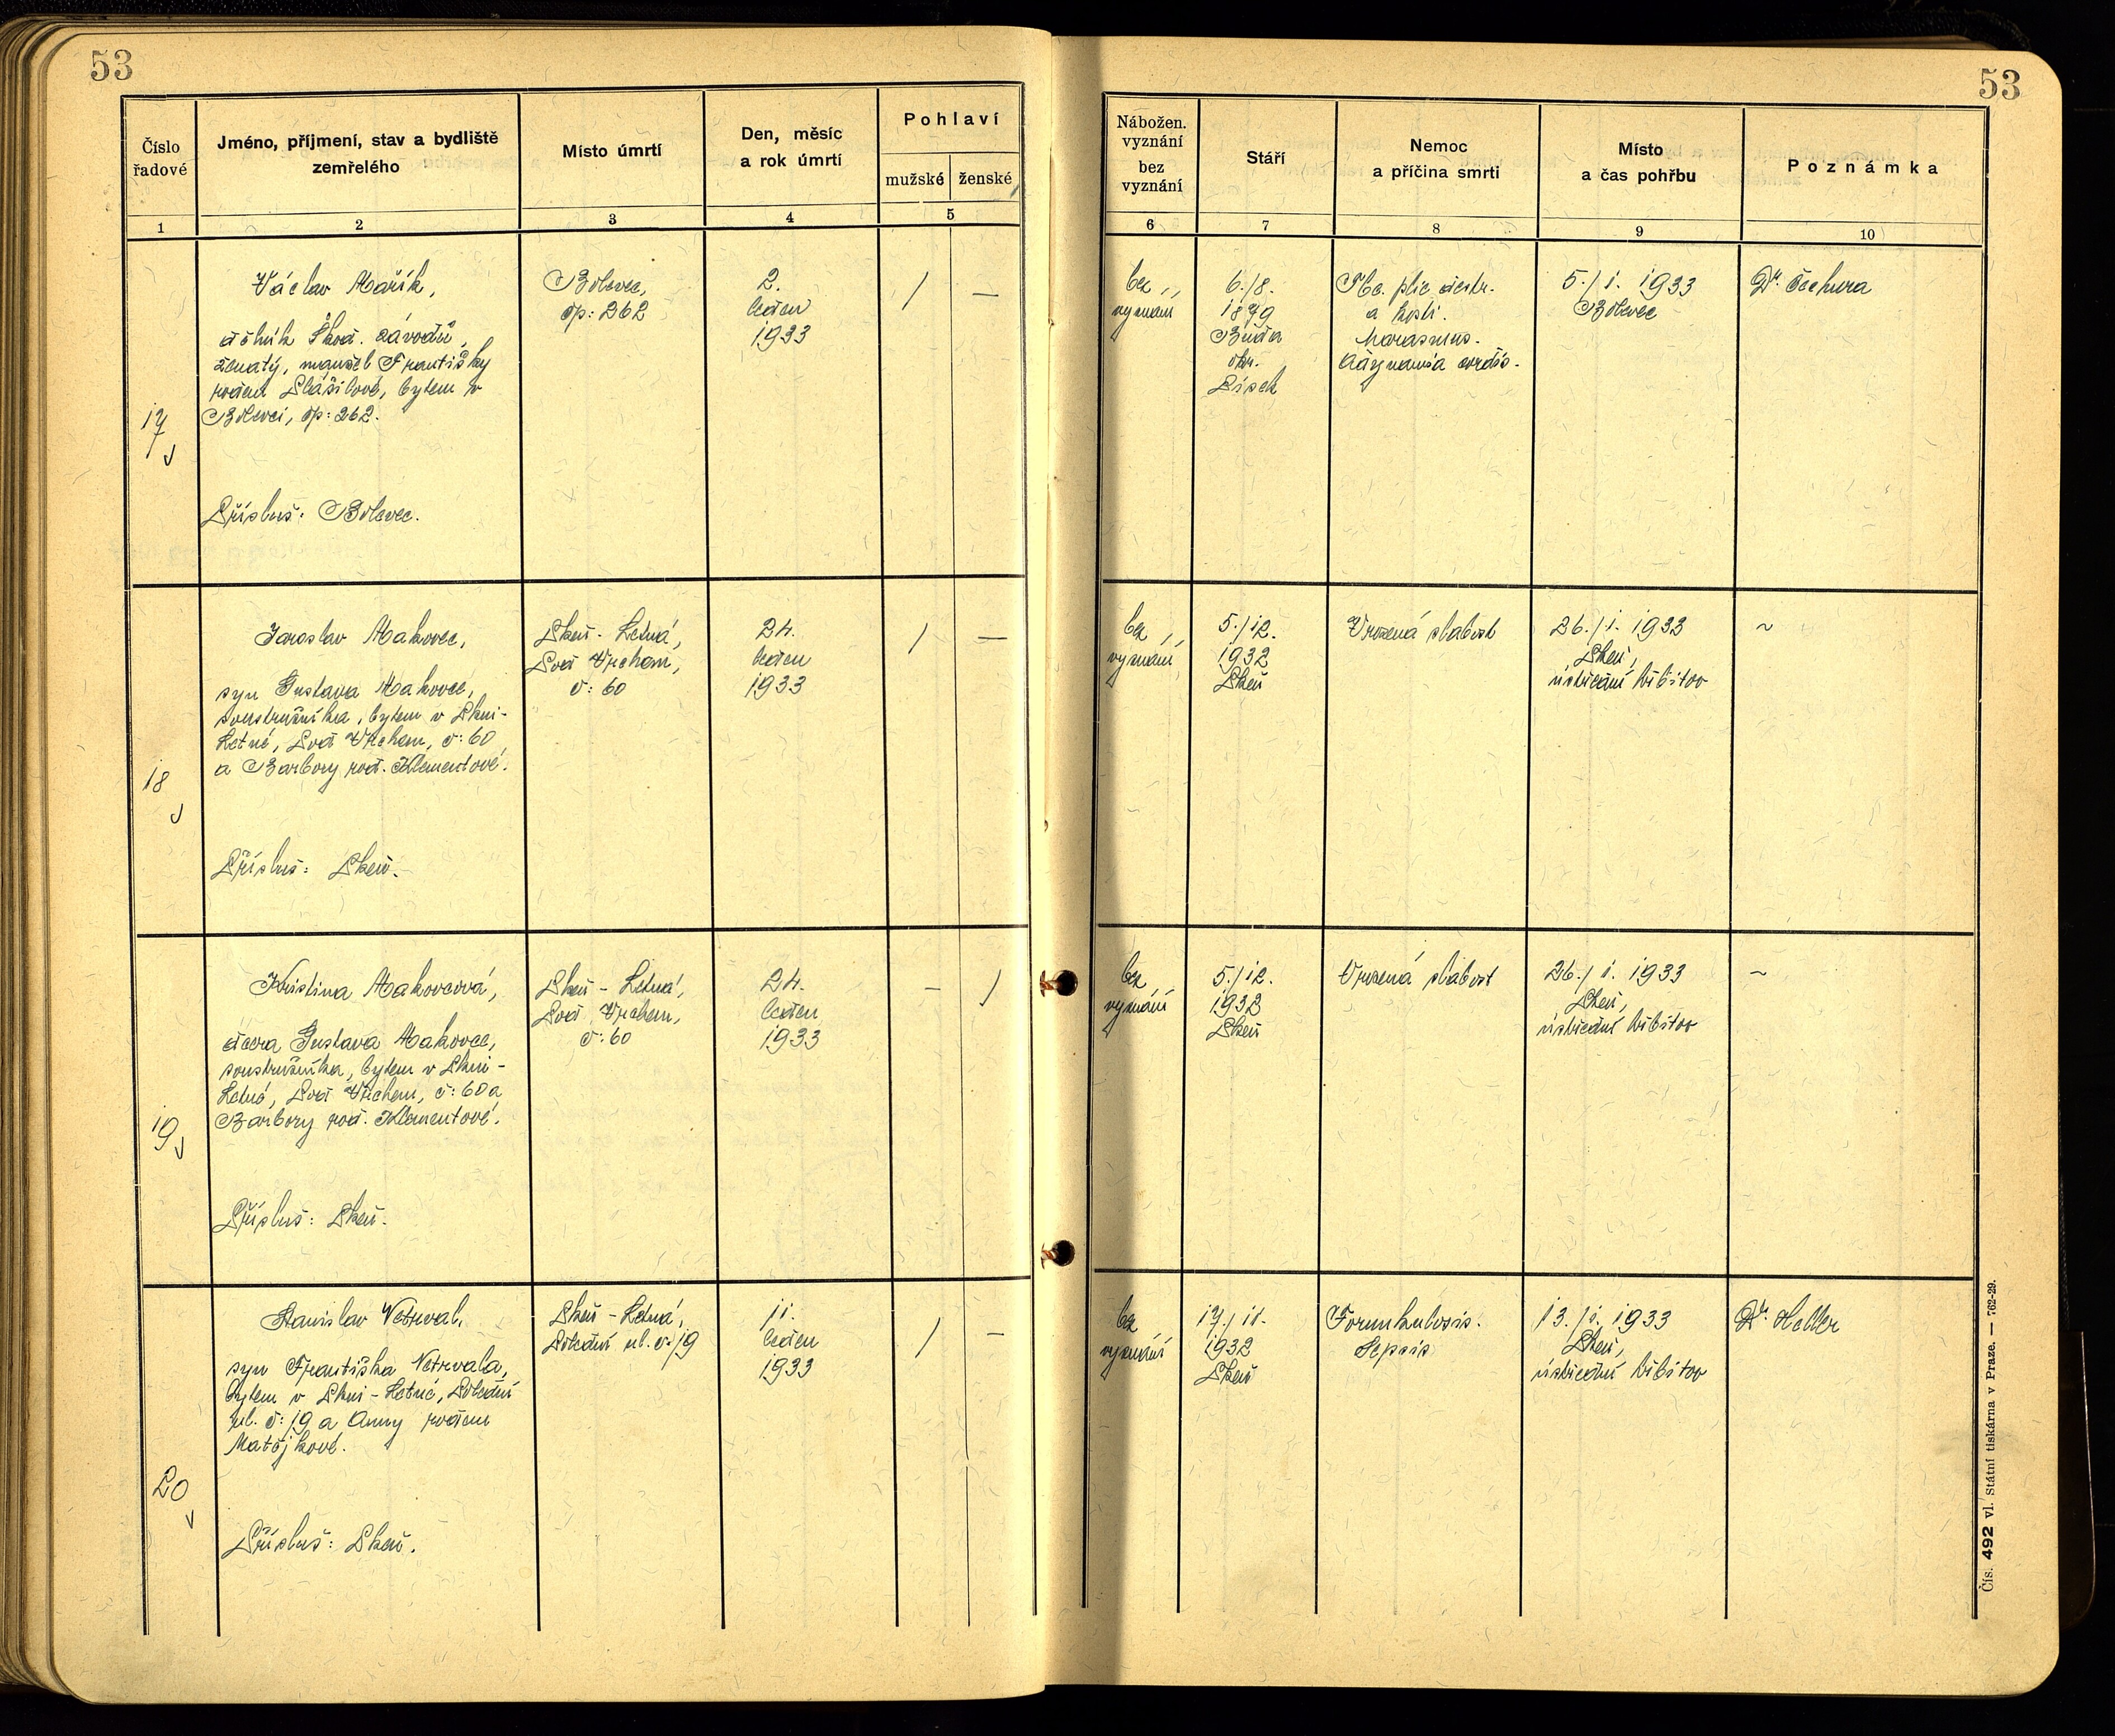 53
53
Číslo
řadové
Jméno, příjmení, stav a bydliště
zemřelého
Místo úmrtí
Den, měsíc
a rok úmrtí
Pohlaví
mužské
ženské
Nábožen.
vyznání
bez
vyznání
Stáří
Nemoc
a příčina smrti
Místo
a čas pohřbu
Poznámka
1
2
3
4
5
6
7
8
9
10
17
Václav Mařík,
dělník Škod. závodů,
ženatý, manžel Františky
rozen Plášilové, bytem v
Bolevci, čp: 262.
Přísluš: Bolevec.
Bolevec,
čp: 262
2.
leden
1933
/
—
bez
vyznání
6./8.
1879
okr.
Písek
Tbc. plic destr.
a kostí.
Marasmus.
Adynamia cordis.
5./1. 1933
Bolevec
Dr. Čechura
18
Jaroslav Makovec,
syn Gustava Makovce,
soustružníka, bytem v Plzni-
Letné, Pod Vrchem, č: 60
a Barbory roz. Klementové.
Přísluš: Plzeň.
Plzeň - Letná,
Pod Vrchem,
č: 60
24.
leden
1933
/
—
bez
vyznání
5./12.
1932
Plzeň
Vrozená slabost
26./1. 1933
Plzeň,
ústřední hřbitov
~
19
Kristina Makovcová,
dcera Gustava Makovce,
soustružníka, bytem v Plzni-
Letné, Pod Vrchem, č: 60 a
Barbory roz. Klementové.
Přísluš: Plzeň.
Plzeň - Letná,
Pod Vrchem,
č: 60
24.
leden
1933
—
/
bez
vyznání
5./12.
1932
Plzeň
Vrozená slabost
26./1. 1933
Plzeň,
ústřední hřbitov
~
20
Stanislav Netrval,
syn Františka Netrvala,
bytem v Plzni - Letné, Polední
ul. č: 19 a Anny rozen
Matějkové.
Přísluš: Plzeň.
Plzeň - Letná,
Polední ul. č: 19
11.
leden
1933
/
—
bez
vyznání
17./11.
1932
Plzeň
Forunkulosis.
Sepsis
13./1. 1933
Plzeň,
ústřední hřbitov
Dr. Heller
Čís. 492 vl. Státní tiskárna v Praze. — 762-29.